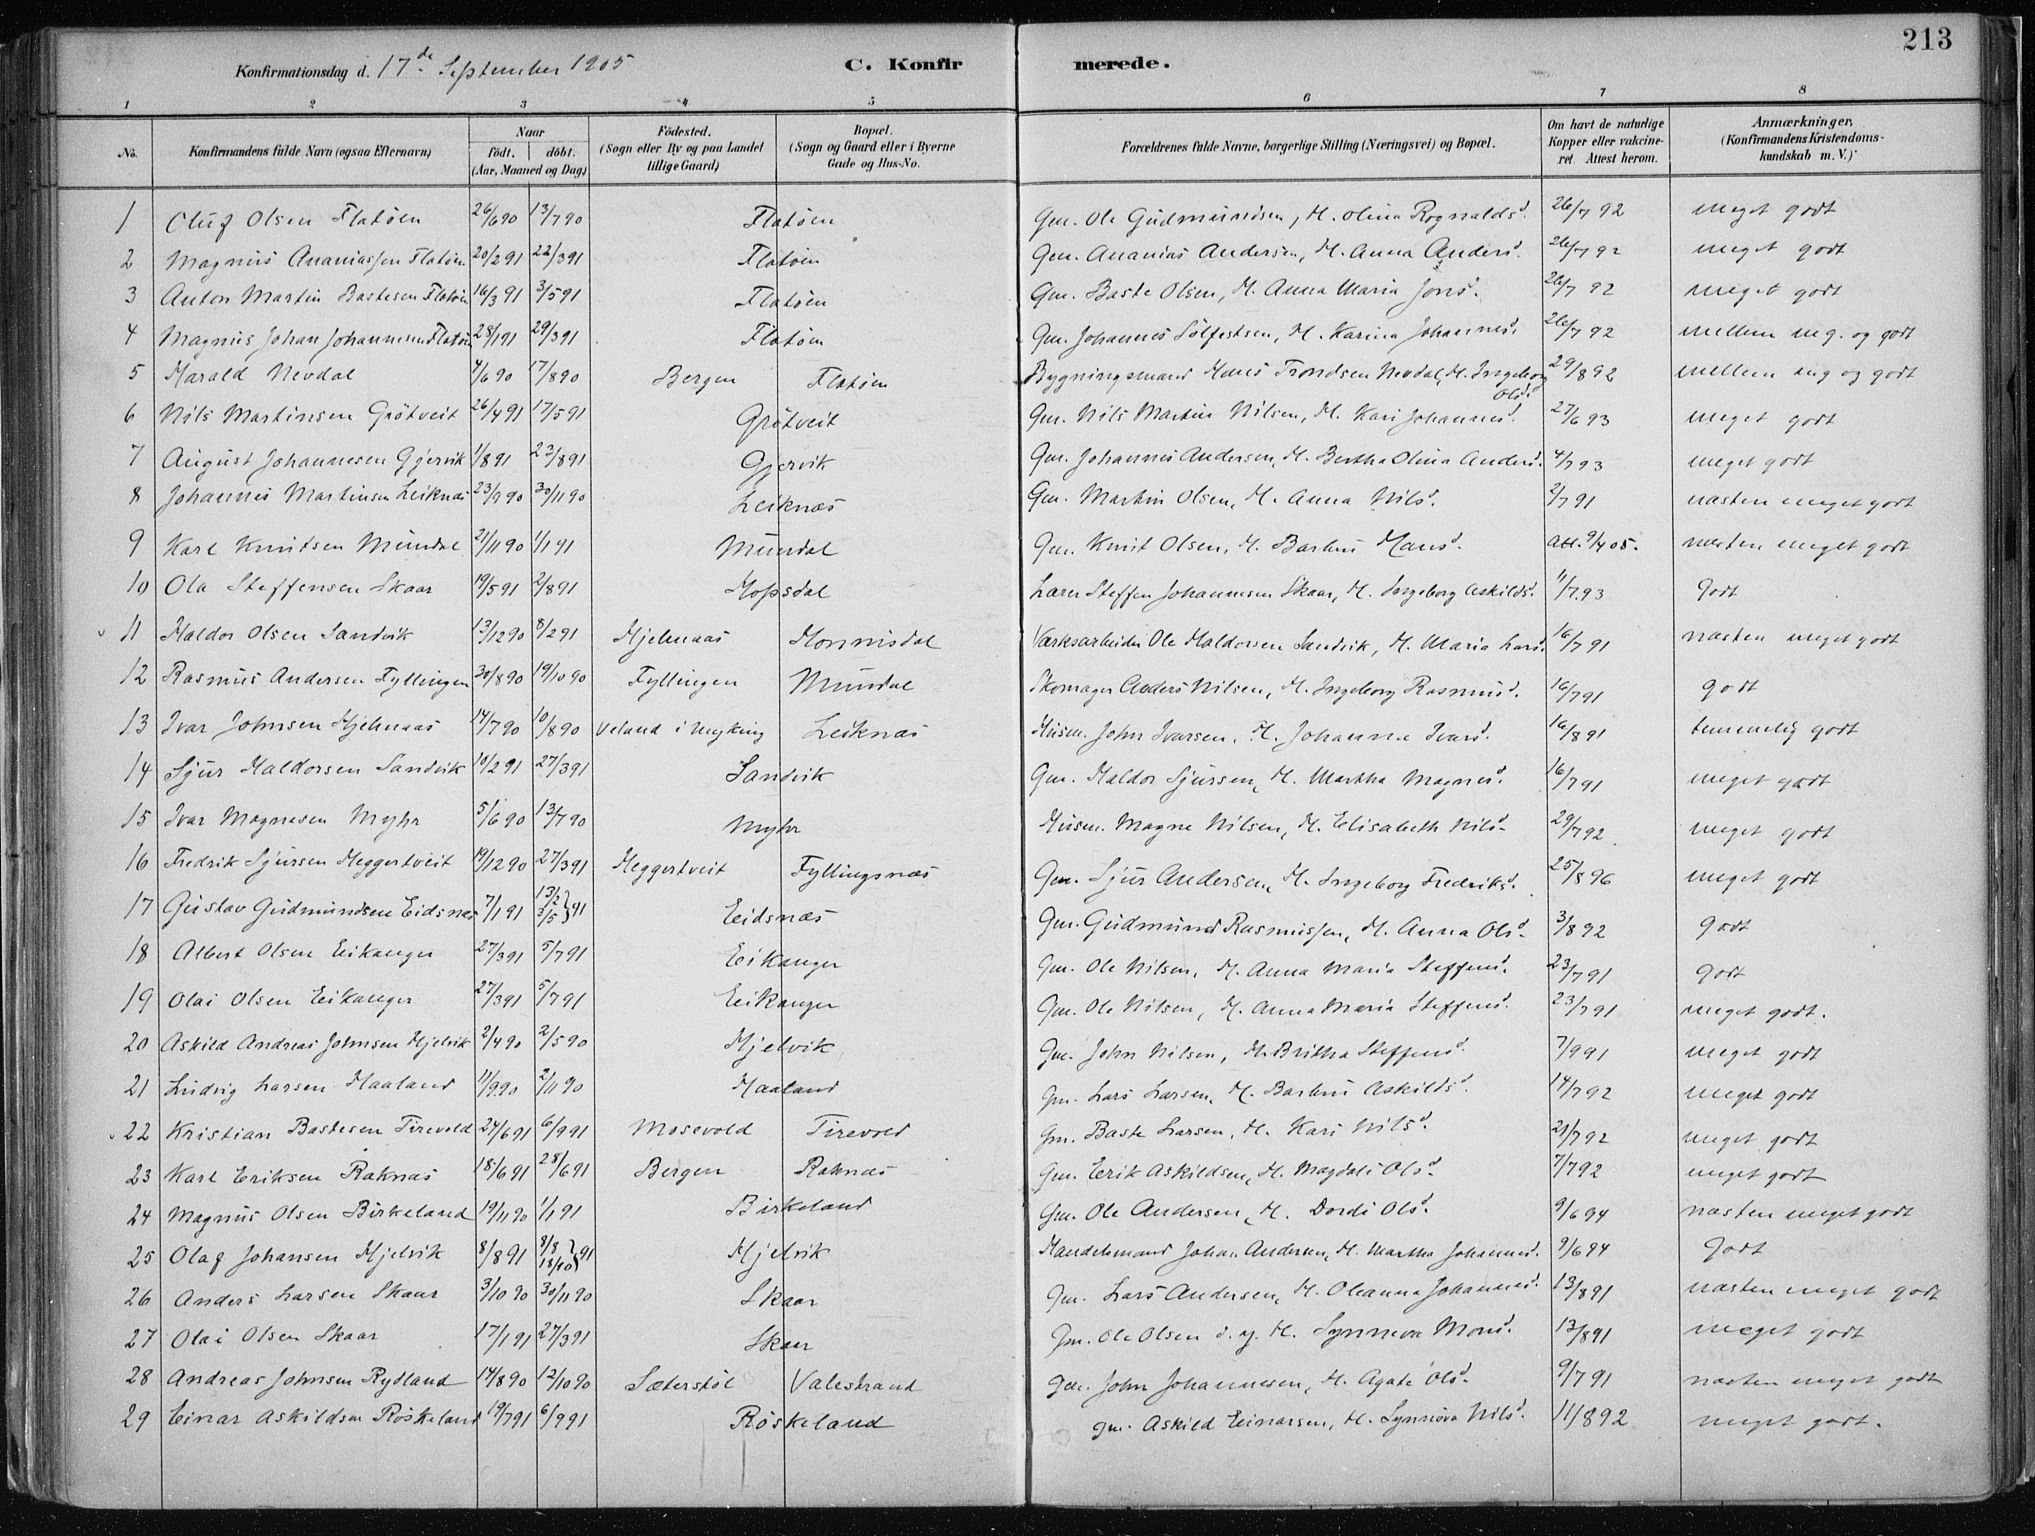 213
Konfirmationsdag d. 17de September 1905 C. Konfir merede.
1 2 3 4 5 6 7 8
No. Konfirmandens fulde Navn (ogsaa Efternavn) Naar födt. döbt. (Aar, Maaned og Dag) Födested. (Sogn eller By og paa Landet tillige Gaard) Bopæl. (Sogn og Gaard eller i Byerne Gade og Hus-No. Forældrenes fulde Navne, borgerlige Stilling (Næringsvei) og Bopæl. Om havt de naturlige Kopper eller vakcineret. Attest herom. Anmærkninger. (Konfirmandens Kristendomskundskab m. V.)
1 Oluf Olsen Flatöen 26/6 90 13/7 90 Flatöen Gm. Ole Gudmundsen, H. Olina Rognaldsd. 26/7 92 meget godt
2 Magnus Ananiassen Flatöen 20/2 91 22/3 91 Flatöen Gm. Ananias Andersen, H. Anna Andersd. 26/7 92 meget godt
3 Anton Martin Bastesen Flatöen 16/3 91 3/5 91 Flatöen Gm. Baste Olsen, H. Anna Maria Jonsd. 26/7 92 meget godt
4 Magnus Johan Johannesen Flatöen 28/1 91 29/3 91 Flatöen Gm. Johannes Sölfestsen, H. Karina Johannesd. 26/7 92 mellem meg. og godt
5 Harald Nevdal 4/6 90 17/8 90 Bergen Flatöen Bygningsmand Hans Trondsen Nevdal, H. Ingeborg Olsd. 29/8 92 mellem meg og godt
6 Nils Martinsen Grötveit 26/4 91 17/5 91 Grötveit Gm. Nils Martin Nilsen, H. Kari Johannesd. 27/6 93 meget godt
7 August Johannesen Gjervik 1/8 91 23/8 91 Gjervik Gm. Johannes Andersen, H. Bertha Olina Andersd. 4/7 93 meget godt
8 Johannes Martinsen Leiknæs 23/9 90 30/11 90 Leiknæs Gm. Martin Olsen, H. Anna Nilsd. 2/7 91 næsten meget godt
9 Karl Knutsen Mundal 21/11 90 1/1 91 Mundal Gm. Knut Olsen, H. Barbru Hansd. att. 9/4 05. næsten meget godt
10 Ola Steffensen Skaar 19/5 91 2/8 91 Hopsdal Lærer Steffen Johannesen Skaar, H. Ingeborg Askildsd. 11/7 93 Godt
11 Haldor Olsen Sandvik 13/12 90 8/2 91 Hjelmaas Monnisdal Værksarbeider Ole Haldorsen Sandvik, H. Maria Larsd. 16/7 91 næsten meget godt
12 Rasmus Andersen Fyllingen 30/8 90 19/10 90 Fyllingen Mundal Skomager Anders Nilsen, H. Ingeborg Rasmusd. 16/7 91 godt
13 Ivar Johnsen Hjelmaas 14/7 90 10/8 90 Veland i Myking Leiknæs Husm. John Ivarsen, H. Johanna Ivarsd. 16/8 91 temmelig godt
14 Sjur Haldorsen Sandvik 10/2 91 27/3 91 Sandvik Gm. Haldor Sjursen, H. Martha Magnesd. 16/7 91 meget godt
15 Ivar Magnesen Myhr 5/6 90 13/7 90 Myhr Husm. Magne Nilsen, H. Elisabeth Nilsd. 29/7 92 meget godt
16 Fredrik Sjursen Heggertveit 19/12 90 27/3 91 Heggertveit Fyllingsnæs Gm. Sjur Andersen, H. Ingeborg Fredriksd. 25/8 96 meget godt
17 Gustav Gudmundsen Eidsnæs 7/1 91 13/2 3/5 } 91 Eidsnæs Gm. Gudmund Rasmussen, H. Anna Olsd. 3/8 92 godt
18 Albert Olsen Eikanger 27/3 91 5/7 91 Eikanger Gm. Ole Nilsen, H. Anna Maria Steffensd. 23/7 91 godt
19 Olai Olsen Eikanger 27/3 91 5/7 91 Eikanger Gm. Ole Nilsen, H. Anna Maria Steffensd. 23/7 91 meget godt.
20 Askild Andreas Johnsen Hjelvik 2/4 90 2/5 90 Hjelvik Gm. John Nilsen, H. Britha Steffensd. 7/9 91 meget godt
21 Ludvig Larsen Haaland 11/9 90 2/11 90 Haaland Gm. Lars Larsen, H. Barbru Askildsd. 14/7 92 meget godt
22 Kristian Bastesen Tirevold 24/6 91 6/9 91 Mosevold Tirevold Gm. Baste Larsen, H. Kari Nilsd. 21/7 92 meget godt
23 Karl Eriksen Raknæs 18/6 91 28/6 91 Bergen Raknæs Gm. Erik Askildsen, H. Magdali Olsd. 7/7 92 meget godt
24 Magnus Olsen Birkeland 19/11 90 1/1 91 Birkeland Gm. Ole Andersen, H. Dordi Olsd. 9/6 94 næsten meget godt
25 Olaf Johansen Hjelvik 8/8 91 8/8 18/10 } 91 Hjelvik Handelsmand Johan Andersen, H. Martha Johannesd. 9/6 94 Godt
26 Anders Larsen Skaar 3/10 90 30/11 90 Skaar Gm. Lars Andersen, H. Oleanna Johannesd. 13/8 91 næsten meget godt
27 Olai Olsen Skaar 17/1 91 27/3 91 Skaar Gm. Ole Olsen d. y. H. Synneva Monsd. 13/8 91 meget godt
28 Andreas Johnsen Rydland 14/8 90 12/10 90 Sæterstöl Valestrand Gm. John Johannesen, H. Agate Olsd. 9/7 91 næsten meget godt
29 Einar Askildsen Röskeland 19/7 91 6/9 91 Röskeland Gm. Askild Einarsen, H. Synnöva Nilsd. 11/8 92 meget godt.